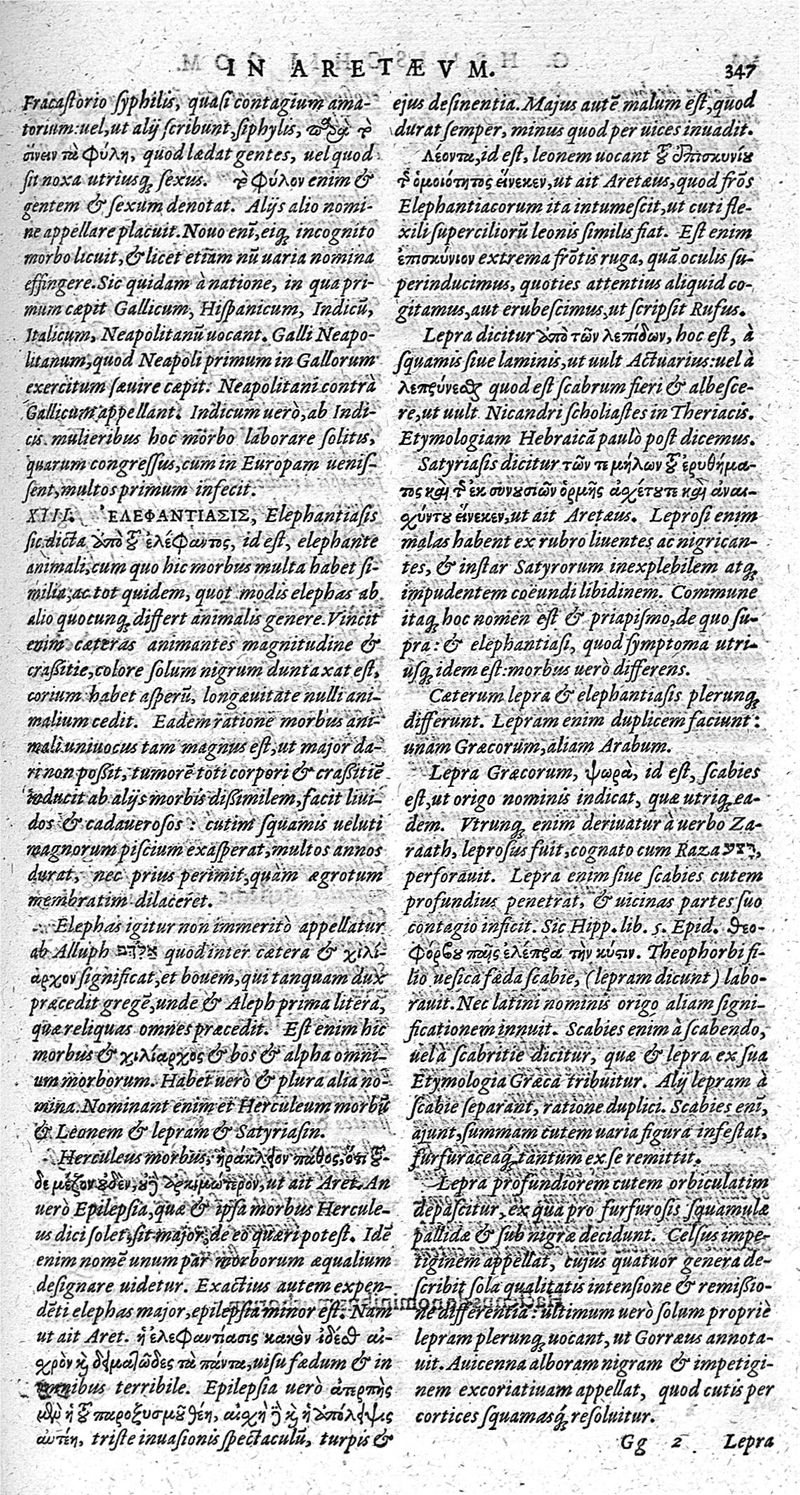 IN ARETÆVM.
347
Fracastorio syphilis, quasi contagium ama-
torium: uel, ut alij scribunt, siphylis, παρὰ τὸ
σίνειν τὰ φύλη, quod lædat gentes, uel quod
sit noxa utriusq; sexus. τὸ φύλον enim &
gentem & sexum denotat. Alijs alio nomi-
ne appellare placuit. Nouo eni, eiq; incognito
morbo licuit, & licet etiam nũ uaria nomina
effingere. Sic quidam à natione, in qua pri-
mum cœpit Gallicum, Hispanicum, Indicũ,
Italicum, Neapolitanũ uocant. Galli Neapo-
litanum, quod Neapoli primum in Gallorum
exercitum sæuire cœpit: Neapolitani contrà
Gallicum appellant. Indicum uerò, ab Indi-
cis mulieribus hoc morbo laborare solitis,
quarum congressus, cum in Europam uenis-
sent, multos primum infecit.
XIII. ἘΛΕΦΑΝΤΙΑΣΙΣ, Elephantiasis
sic dicta ἀπὸ τοῦ ἐλέφαντος, id est, elephante
animali, cum quo hic morbus multa habet si-
milia, ac tot quidem, quot modis elephas ab
alio quocunq; differt animalis genere. Vincit
enim cæteras animantes magnitudine &
crassitie, colore solum nigrum duntaxat est,
corium habet asperũ, longæuitate nulli ani-
malium cedit. Eadem ratione morbus ani-
mali uniuocus tam magnus est, ut major da-
ri non possit, tumorẽ toti corpori & crassitiẽ
inducit ab alijs morbis dissimilem, facit liui-
dos & cadauerosos: cutim squamis ueluti
magnorum piscium exasperat, multos annos
durat, nec prius perimit, quàm ægrotum
membratim dilaceret.
Elephas igitur non immeritò appellatur
ab Alluph quod inter cætera & χιλί-
αρχον significat, et bouem, qui tanquam dux
præcedit gregẽ, unde & Aleph prima litera,
quæ reliquas omnes præcedit. Est enim hic
morbus & χιλίαρχος & bos & alpha omni-
um morborum. Habet uerò & plura alia no-
mina. Nominant enim et Herculeum morbũ
& Leonem & lepram & Satyriasin.
Herculeus morbus, ἡράκλειον πάθος, ὅτι οὐ-
δε μέζον οὐδὲν, οὐδ' ἀλκιμώτερον, ut ait Aret. An
uerò Epilepsia, quæ & ipsa morbus Hercule-
us dici solet, sit major, de eo quæri potest. Idẽ
enim nomẽ unum par morborum æqualium
designare uidetur. Exactius autem expen-
dẽti elephas major, epilepsia minor est. Nam
ut ait Aret. ἡ ἐλεφαντίασις κακὸν ἰδέσθαι αἰ-
χρὸν καὶ δειματῶδες τὰ πάντα, uisu fœdum & in
omnibus terribile. Epilepsia uerò ἀτερπὴς
μὲν ἡ τοῦ παροξυσμοῦ θέη, αἰσχρὴ δὲ καὶ ἡ ἀπόλειψις
αὐτέη, triste inuasionis spectaculũ, turpis &
ejus desinentia. Majus autẽ malum est, quod
durat semper, minus quod per uices inuadit.
Λέοντα, id est, leonem uocant τοῦ ἐπισκυνίου
τῆς ὁμοιότητος εἵνεκεν, ut ait Aretæus, quod frõs
Elephantiacorum ita intumescit, ut cuti fle-
xili superciliorũ leonis similis fiat. Est enim
ἐπισκύνιον extrema frõtis ruga, quã oculis su-
perinducimus, quoties attentius aliquid co-
gitamus, aut erubescimus, ut scripsit Rufus.
Lepra dicitur ἀπὸ τῶν λεπίδων, hoc est, à
squamis siue laminis, ut uult Actuarius: uel à
λεπρύνεσθαι quod est scabrum fieri & albesce-
re, ut uult Nicandri scholiastes in Theriacis.
Etymologiam Hebraicã paulò post dicemus.
Satyriasis dicitur τῶν τε μήλων τοῦ ἐρυθήμα-
τος καὶ τῆς ἐκ συνουσιῶν ὁρμῆς ἀσχέτου τε καὶ ἀναι-
σχύντου εἵνεκεν, ut ait Aretæus. Leprosi enim
malas habent ex rubro liuentes ac nigrican-
tes, & instar Satyrorum inexplebilem atq;
impudentem coeundi libidinem. Commune
itaq; hoc nomen est & priapismo, de quo su-
pra: & elephantiasi, quod symptoma utri-
usq; idem est: morbus uerò differens.
Cæterum lepra & elephantiasis plerunq;
differunt. Lepram enim duplicem faciunt:
unam Græcorum, aliam Arabum.
Lepra Græcorum, ψωρὰ, id est, scabies
est, ut origo nominis indicat, quæ utriq; ea-
dem. Vtrunq; enim deriuatur à uerbo Za-
raath, leprosus fuit, cognato cum Raza רצע,
perforauit. Lepra enim siue scabies cutem
profundius penetrat, & uicinas partes suo
contagio inficit. Sic Hipp. lib. 5. Epid. θεο-
φόρβου παῖς ἐλέπρα τὴν κύστιν. Theophorbi fi-
lio uesica fœda scabie, (lepram dicunt) labo-
rauit. Nec latini nominis origo aliam signi-
ficationem innuit. Scabies enim à scabendo,
uel à scabritie dicitur, quæ & lepra ex sua
Etymologia Græca tribuitur. Alij lepram à
scabie separant, ratione duplici. Scabies eni,
ajunt, summam cutem uaria figura infestat,
furfuraceaq; tantum ex se remittit.
Lepra profundiorem cutem orbiculatim
depascitur, ex qua pro furfurosis squamulæ
pallidæ & sub nigræ decidunt. Celsus impe-
tiginem appellat, cujus quatuor genera de-
scribit sola qualitatis intensione & remissio-
ne differentia: ultimum uerò solum propriè
lepram plerunq; uocant, ut Gorræus annota-
uit. Auicenna alboram nigram & impetigi-
nem excoriatiuam appellat, quod cutis per
cortices squamasq; resoluitur.
Gg 2 Lepra